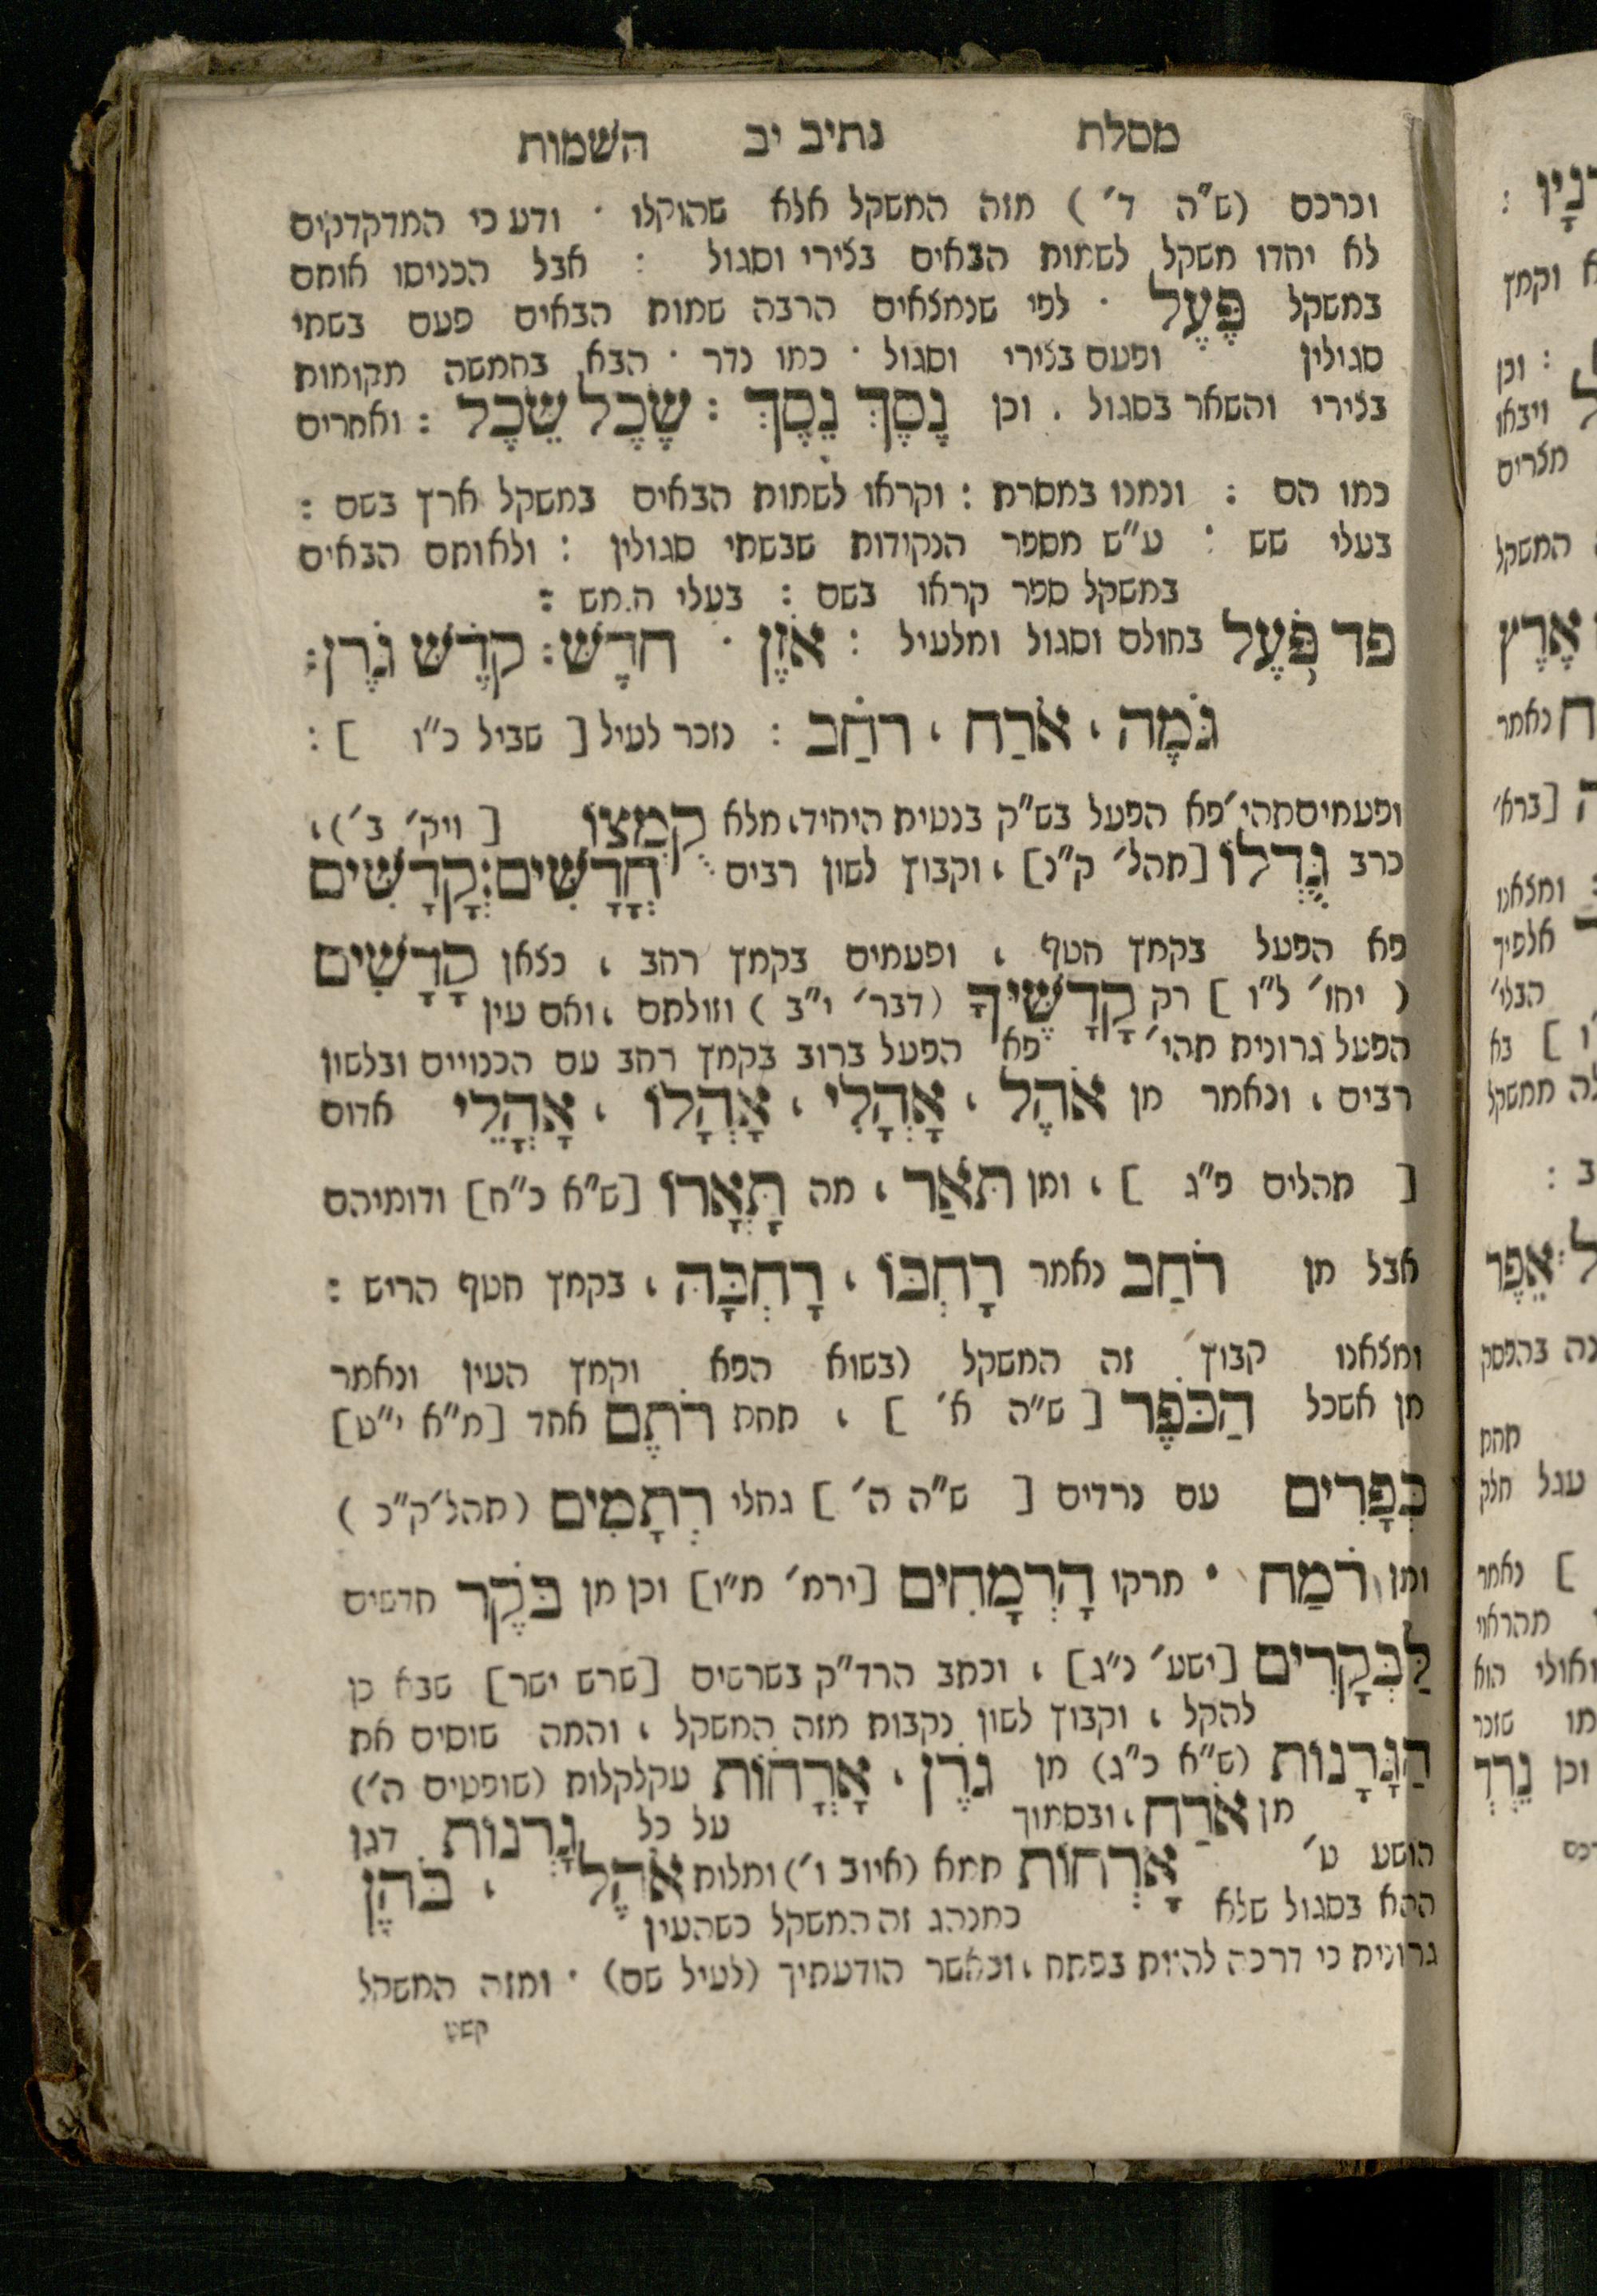 מסלת נתיב יב השמות
וכרכם (ש"ה ד') מזה המשקל אלא שהוקלו · ודע כי המדקדקים
לא יחדו משקל לשמות הבאים בצירי וסגול : אבל הכניסו אותם
במשקל פֶּעֶל · לפי שנמצאים הרבה שמות הבאים פעם בשתי
סגולין ופעם בצירי וסגול · כמו נדר · הבא בחמשה מקומות
בצירי והשאר בסגול . וכן נֶסֶךְ נֵסֶךְ : שֶׂכֶל שֵׂכֶל : ואחרים
כמו הם : ונמנו במסרת : וקראו לשמות הבאים במשקל ארץ בשם :
בעלי שש : ע"ש מספר הנקודות שבשתי סגולין : ולאותם הבאים
במשקל ספר קראו בשם : בעלי חמש :
פד פֹּעֶל בחולם וסגול ומלעיל : אֹזֶן · חדֶשׁ : קֹדֶשׁ גֹּרֶן :
גֹּמֶה , אֹרַח , רֹחַב : נזכר לעיל [ שביל כ"ו ] :
ופעמים תהי' פא הפעל בש"ק בנטית היחיד , מלא קֻמְצוֹ [ ויק' ב') ,
כרב גֻּדְלוֹ [תהל' ק"נ] , וקבוץ לשון רבים חֳדָשִׁים : קֳדָשִׁים
פא הפעל בקמץ חטף , ופעמים בקמץ רחב , כצאן קָדָשִׁים
( יחז' ל"ו ] רק קָדָשֶׁיךָ (דבר' י"ב ) וזולתם , ואם עין
הפעל גרונית תהי' פא הפעל ברוב בקמץ רחב עם הכנויים ובלשון
רבים , ונאמר מן אֹהֶל , אָהֳלִי , אָהֳלוֹ , אָהֳלֵי אדום
[ תהלים פ"ג ] , ומן תֹּאַר , מה תָּאֳרוֹ [ש"א כ"ח] ודומיהם
אבל מן רֹחַב נאמר רָחְבּוֹ , רָחְבָּהּ , בקמץ חטף הריש :
ומצאנו קבוץ זה המשקל (בשוא הפא וקמץ העין ונאמר
מן אשכל הַכֹּפֶר [ ש"ה א' ] , תחת רֹתֶם אחד [מ"א י"ט]
כְּפָרִים עם נרדים [ ש"ה ה' ] גחלי רְתָמִים (תהל' ק"כ )
ומן רֹמַח · מרקו הָרְמָחִים [ירמ' מ"ו] וכן מן בֹּקֶר חדשים
לַבְּקָרִים [ישע' נ"ג] , וכתב הרד"ק בשרשים [שרש ישר] שבא כן
להקל , וקבוץ לשון נקבות מזה המשקל , והמה שוסים את
הַגֳּרָנוֹת (ש"א כ"ג) מן גֹּרֶן , אֳרָחוֹת עקלקלות (שופטים ה')
מן אֹרַח , ובסמוך על כל גָּרְנוֹת דגן
הושע ט' אָרְחוֹת תמא (איוב ו') ומלות אֹהֶל , בֹּהֶן
ההא בסגול שלא כמנהג זה המשקל כשהעין
גרונית כי דרכה להיות בפתח , וכאשר הודעתיך (לעיל שם) · ומזה המשקל
קשט